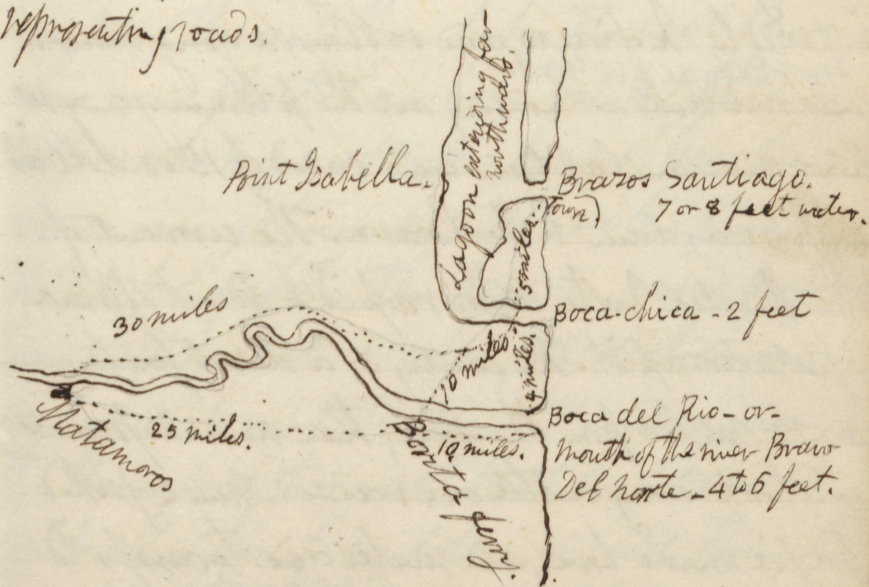 representing roads.
Lagoon extending far
northwards
Point Isabella.
Brazos Santiago.
(Town)
7 or 8 feet water.
5 miles.
30 miles
Boca-chica - 2 feet
10 miles
4 miles.
Boca del Rio - or -
mouth of the river Bravo
Del Norte - 4 to 6 feet.
Matamoros
25 miles.
10 miles.